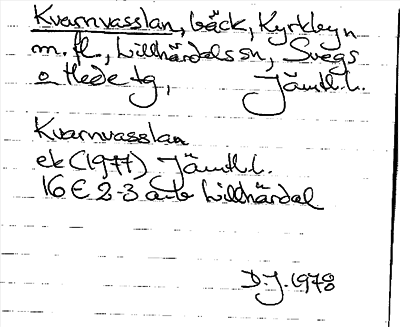 Kvarnvasslan, bäck, Kyrkbyn
m. fl., Lillhärdals sn, Svegs
o Hede tg, Jämtl. l.
Kvarnvasslan
ek (1977) Jämtl. l.
16 E 2-3 a-b Lillhärdal
D. J. 1978